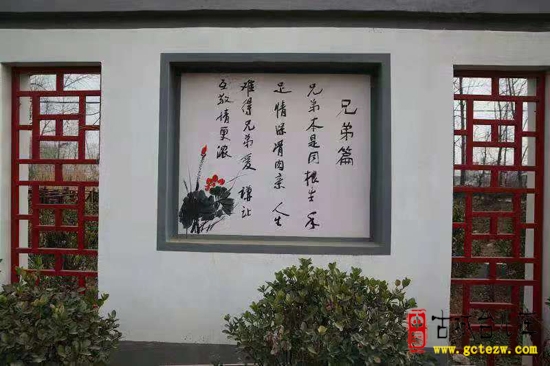 兄弟篇
兄弟本是同根生 手
足情深骨肉亲 人生
难得兄弟爱 禅让
互敬情更浓
www.gctezw.com